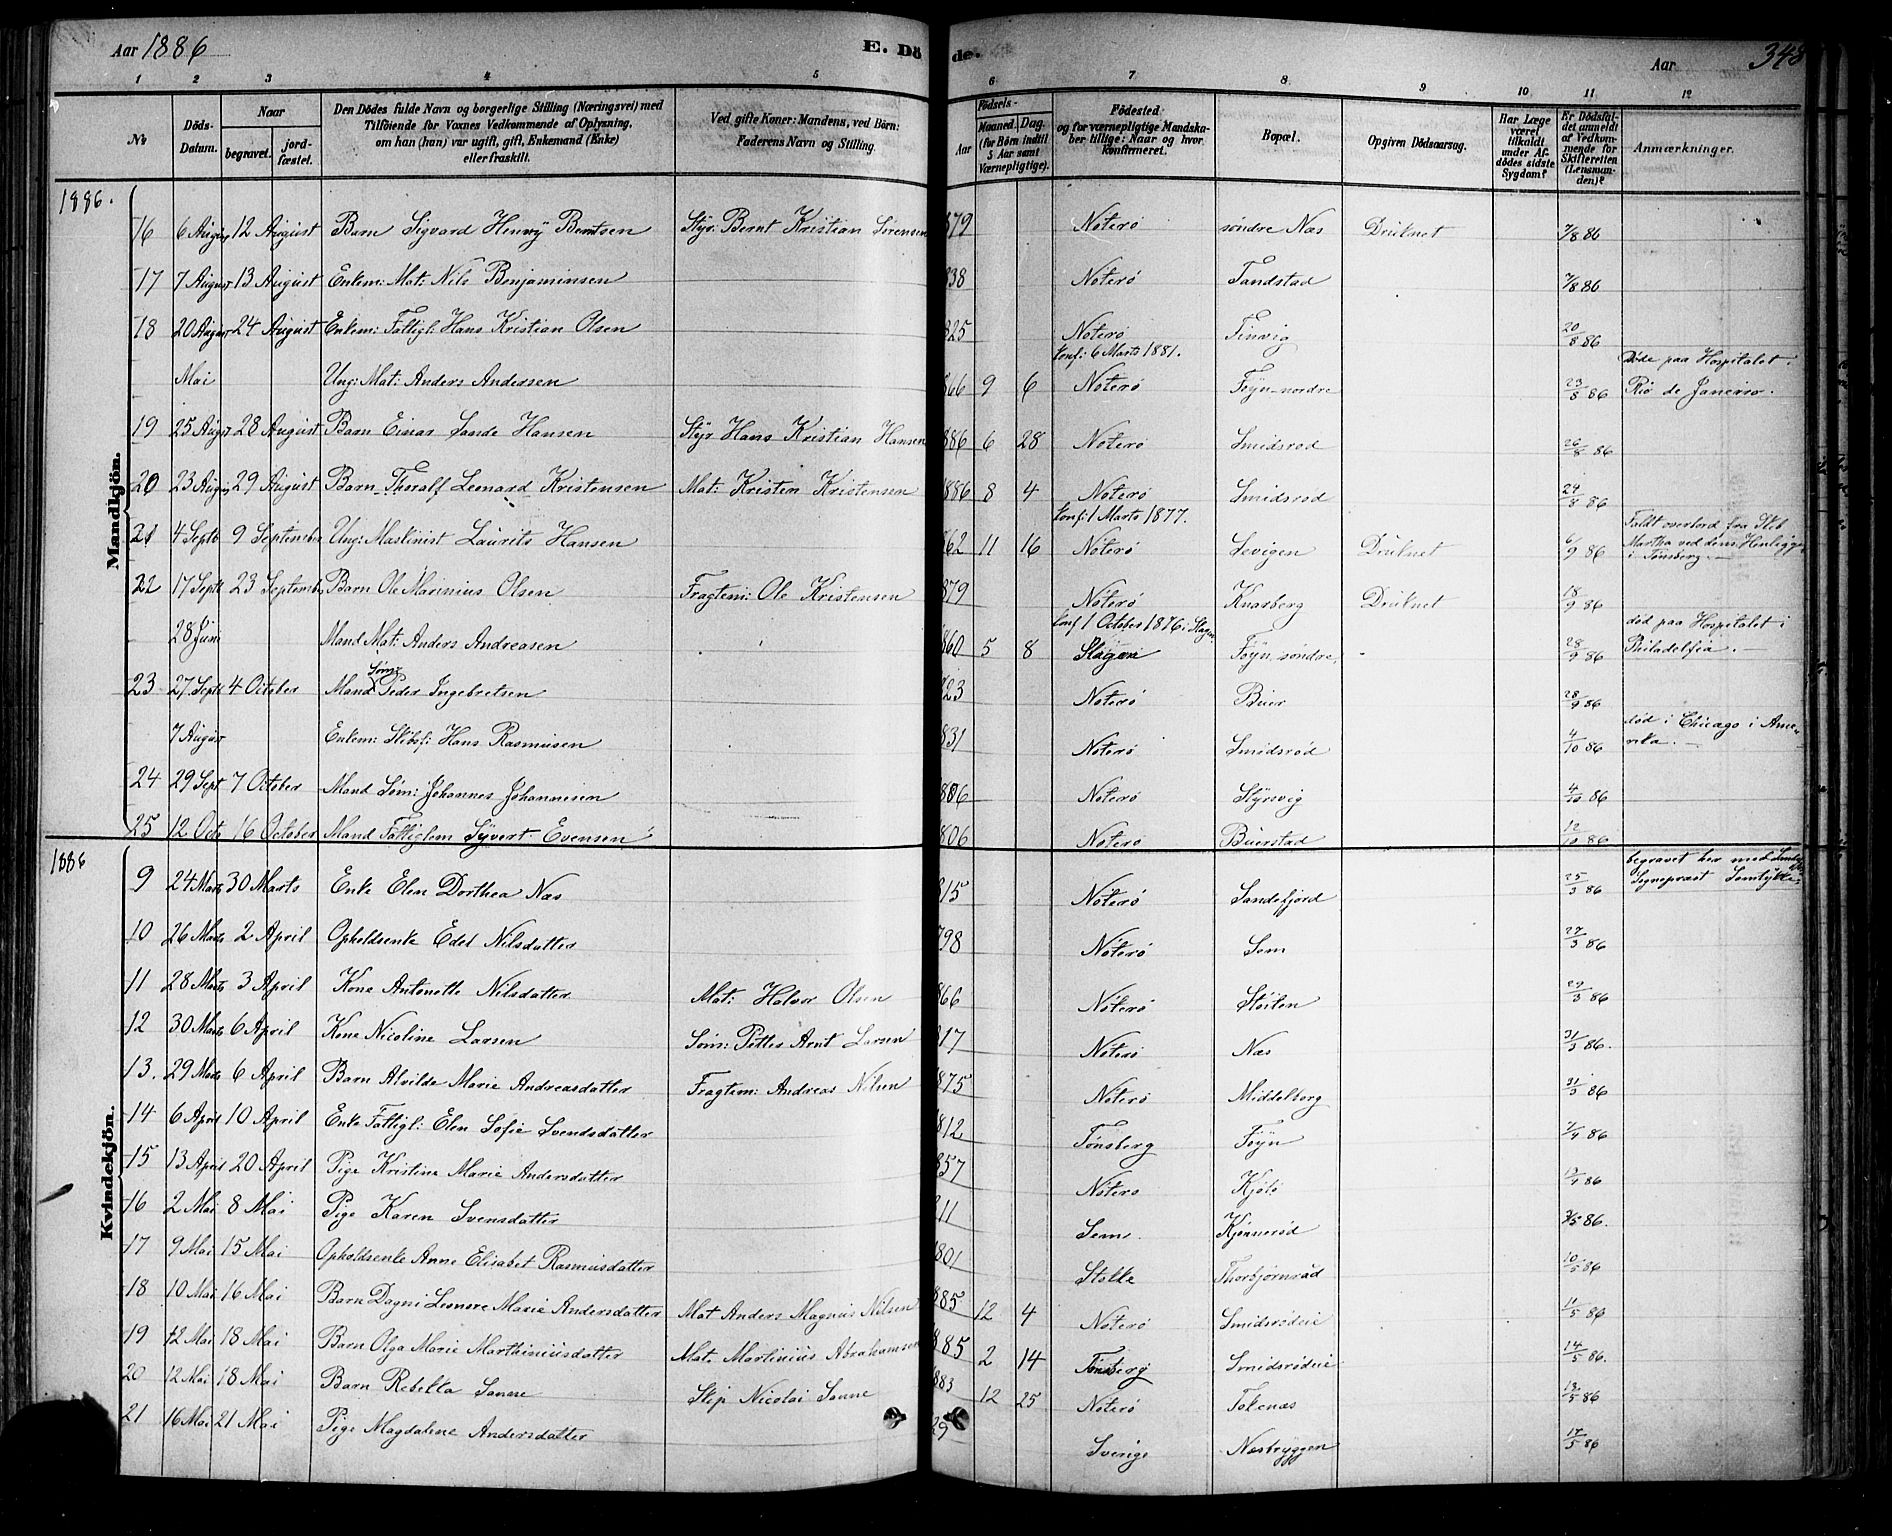 Aar 1886 E. Döde. Aar 348
1 2 3 4 5 6 7 8 9 10 11 12
№ Döds-Datum. Naar begravet. jordfæstet. Den Dödes fulde Navn og borgerlige Stilling (Næringsvei) med Tilföiende for Voxnes Vedkommende af Oplysning, om han (hun) var ugift, gift, Enkemand (Enke) eller fraskilt. Ved gifte Koner: Mandens, ved Börn: Faderens Navn og Stilling. Födsels- Aar Maaned. Dag. (for Börn indtil 5 Aar samt Værnepligtige). Födested og for værnepligtige Mandskaber tillige: Naar og hvor konfirmeret. Bopæl. Opgiven Dödsaarsag. Har Læge været tilkaldt under Afdödes sidste Sygdom? Er Dödsfaldet anmeldt af Vedkommende for Skifteretten (Lensmanden)? Anmærkninger.
1886.
Mandkjön.
16 6 August 12 August Barn Sigvard Henry Berntsen Styr. Bernt Kristian Sørensen 879 Noterö søndre Næs Druknet 7/8 86
17 7 August 13 August Enkem: Mat: Nils Benjaminsen 838 Noterö Tandstad 7/8 86
18 20 August 24 August Enkem: Fattigl: Hans Kristian Olsen 825 Noterö Tinvig 20/8 86
Mai Ung: Mat: Anders Andersen 866 9 6 Konf: 6 Marts 1881. Noterö Føyn nordre 23/8 86 Døde paa Hospitalet i Rio de Janeiro.
19 25 August 28 August Barn Einar Sande Hansen Styr Hans Kristian Hansen 886 6 28 Noterö Smidsrød 26/8 86
20 23 August 29 August Barn Thoralf Leonard Kristensen Mat: Kristen Kristensen 1886 8 4 Noterö Smidsrød 24/8 86
21 4 Septb 9 September Ung: Maskinist Laurits Hansen 862 11 16 Konf: 1 Marts 1877. Noterö Levigen Druknet 6/9 86 Faldt overbord fra Skib Martha ved dens Henligg. i Tønsberg.
22 17 Septb 23 September Barn Ole Marinius Olsen Fragtem: Ole Kristensen 879 Noterö Knarberg Druknet 18/9 86
28 Juni Mand Mat: Anders Andreasen 860 5 8 Konf 1 October 1876 i Slagen Slagen Føyn søndre 28/9 86 død paa Hospitalet i Philadelfia.
23 27 Septb 4 October Mand Søm: Peder Ingebretsen 823 Noterö Buer 28/9 86
7 August Enkem: Skibsf: Hans Rasmusen 831 Noterö Smidsrød 4/10 86 død i Chicago i Amerika.
24 29 Sept 7 October Mand Søm: Johannes Johannesen 806 Noterö Styrsvig 4/10 86
25 12 Octo 16 October Mand Fattiglem Syvert Evensen 806 Noterö Buerstad 12/10 86
1886
Kvindekjön.
9 24 Marts 30 Marts Enke Elen Dorthea Næs 815 Noterö Sandefjord 25/3 86 begravet her med Sogneprest Samtykke
10 26 Marts 2 April Opholdsenke Edel Nilsdatter 798 Nöterö Sem 27/3 86
11 28 Marts 3 April Kone Antonette Nilsdatter Mat: Halvor Olsen 866 Nöterö Støiten 29/3 86
12 30 Marts 6 April Kone Nicoline Larsen Søm: Petter Arnt Larsen 817 Nöterö Næs 31/3 86.
13. 29 Marts 6 April Barn Alvilde Marie Andreasdatter Fragtem: Andreas Nilsen 875 Noterö Middelborg 31/3 86
14 6 April 10 April Enke Fattigl: Elen Sofie Svendsdatter 1812 Tønsberg Føyn 7/4 86
15 13 April 20 April Pige Kristine Marie Andersdatter 857 Nöterö Kjøle /4 86
16 2 Mai 8 Mai Pige Karen Svensdatter 811 Sem Kjønnerød 3/5 86.
17 9 Mai 15 Mai Opholdsenke Anne Elisabet Rasmusdatter 1801 Stokke Thorbjørnrød 10/5 86
18 10 Mai 16 Mai Barn Dagni Leonore Marie Andersdatter Mat Anders Magnus Nilsen 885 12 4 Noterö Smidsrødeie 11/5 86
19 12 Mai 18 Mai Barn Olga Marie Marthiniusdatter Mat. Martinius Abrahamsen 885 2 14 Tønsberg Smidsrødeie 14/5 86.
20 12 Mai 18 Mai Barn Rebekka Sanne Skip Nicolai Sanne 1883 12 25 Noterö Tokenæs 13/5 86
21 16 Mai 21 Mai Pige Magdalene Andersdatter 29 Sverige Næsbryggen 17/5 86